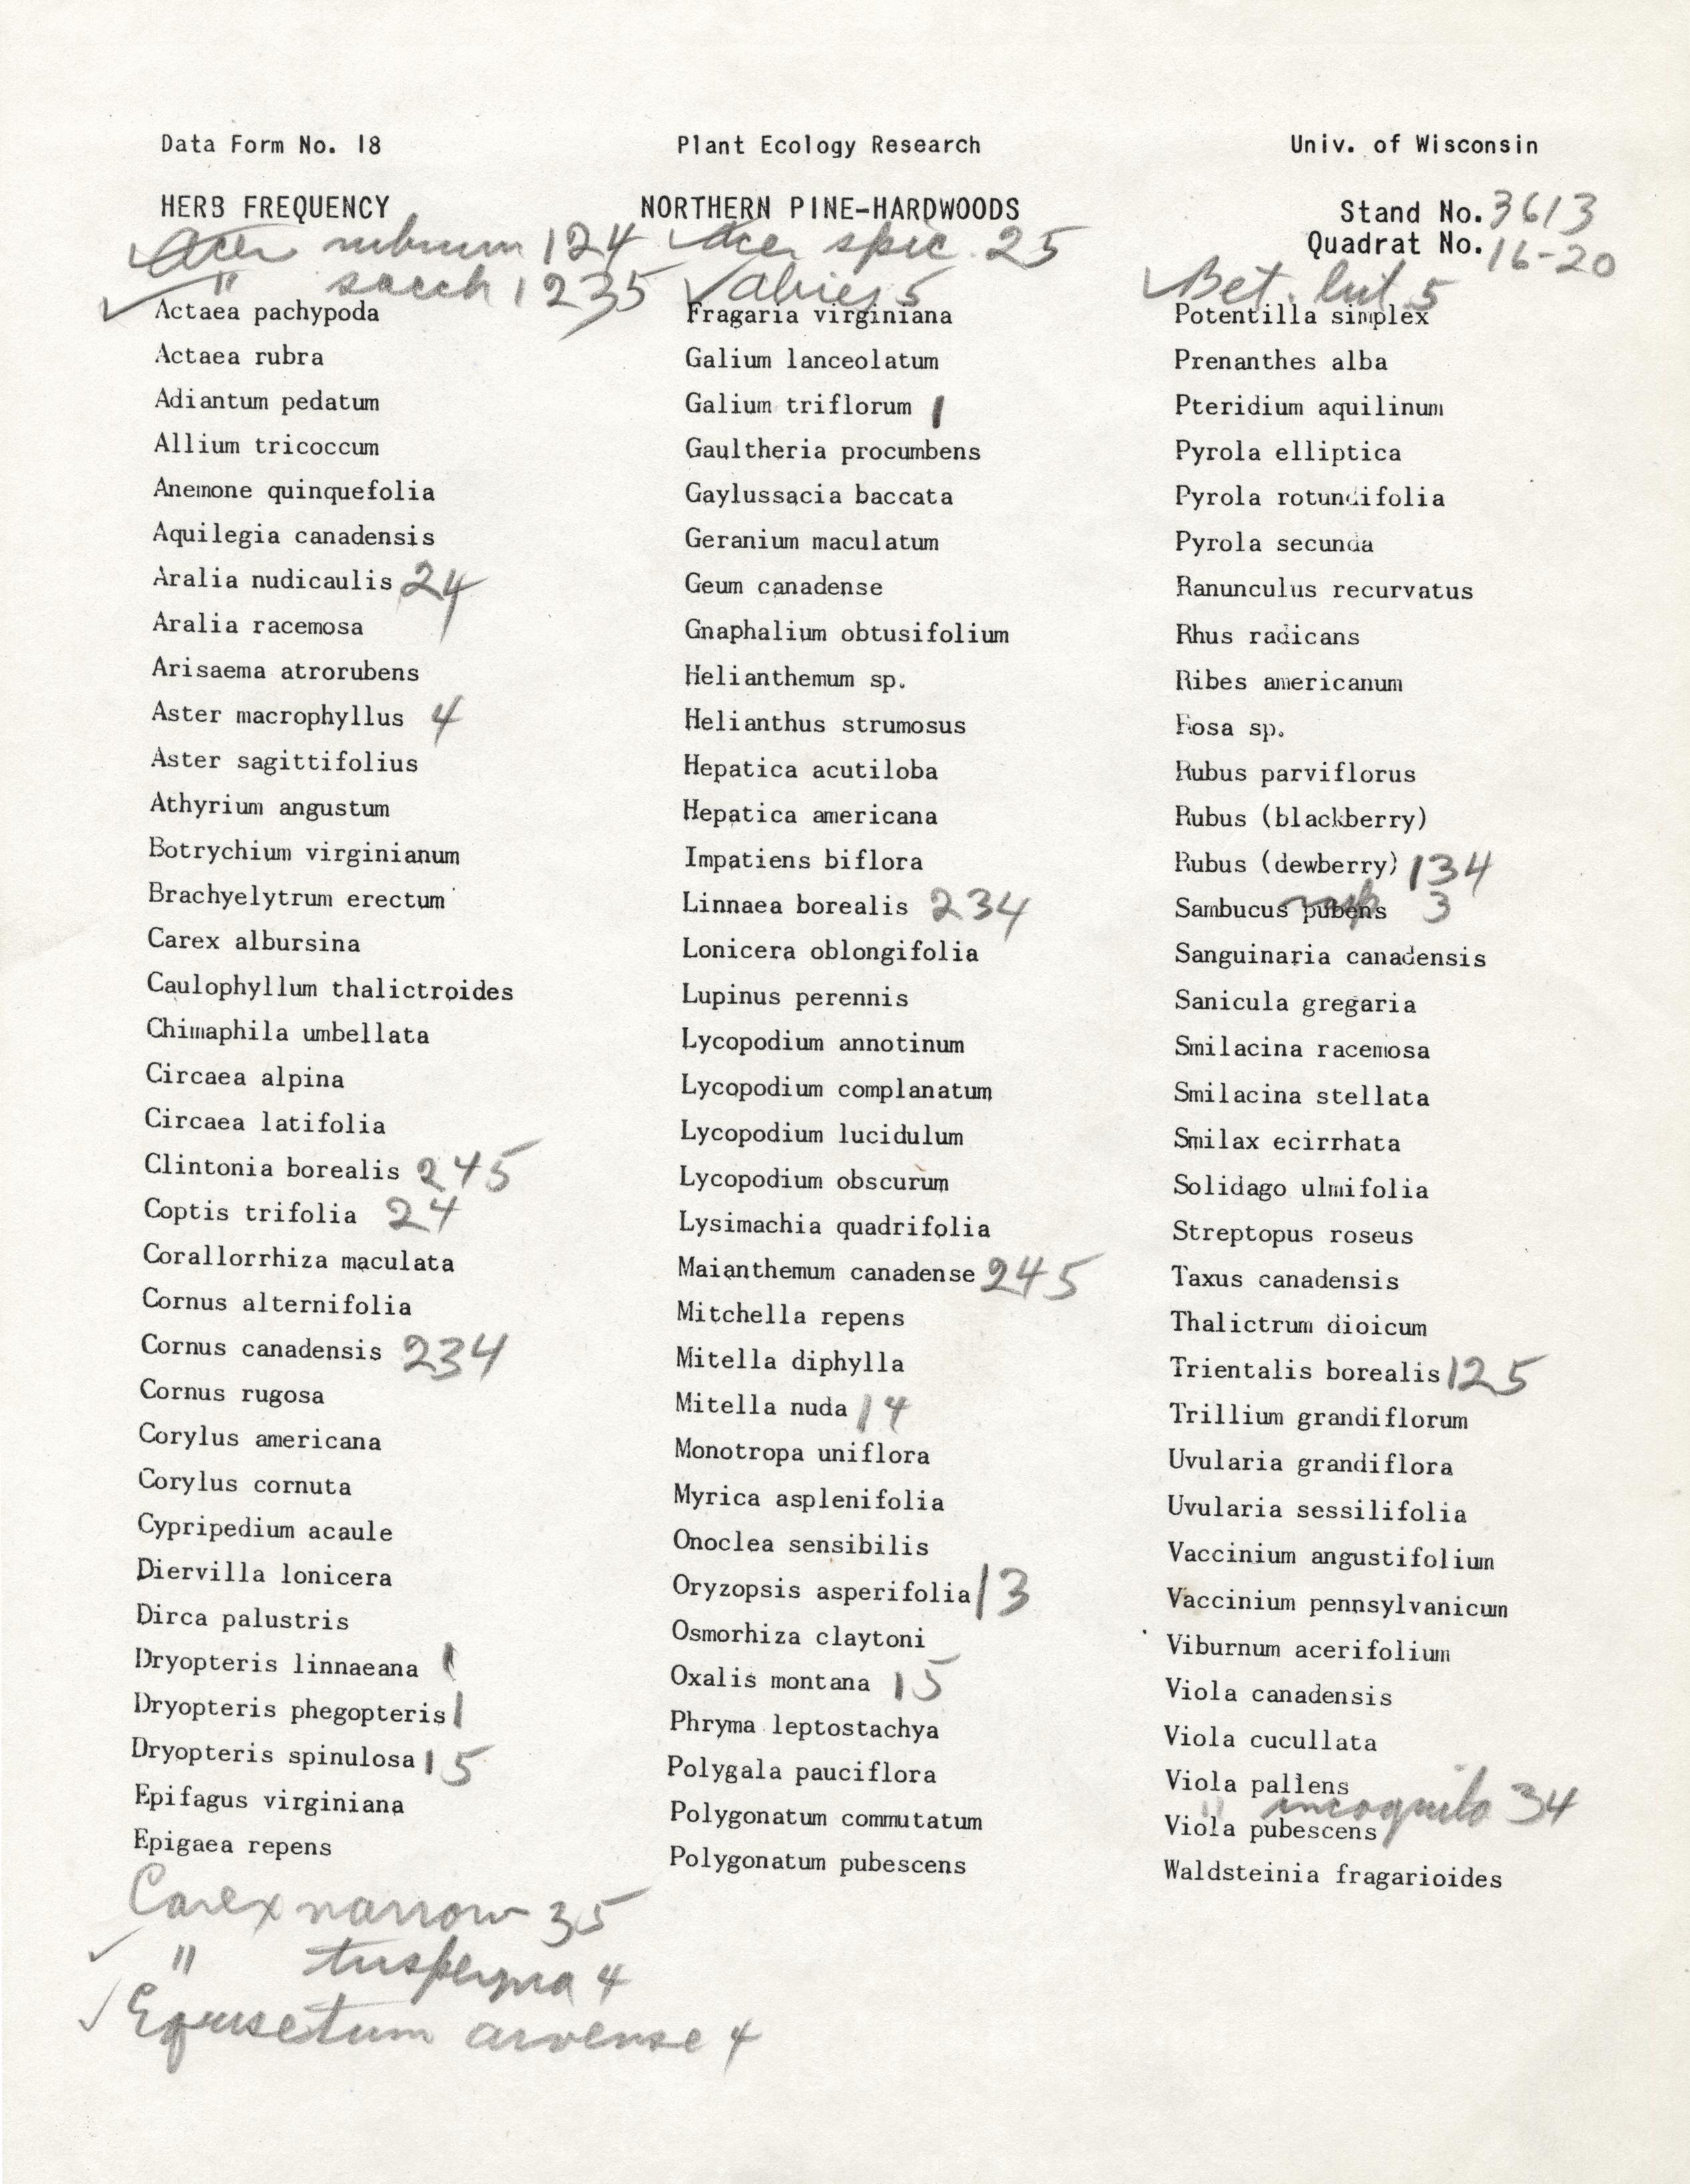 Data Form No. 18
Plant Ecology Research
Univ. of Wisconsin
HERB FREQUENCY
NORTHERN PINE-HARDWOODS
Stand No. 3613
Quadrat No. 16-20
Acer rubrum 124
" sacch 1235
Actaea pachypoda
Actaea rubra
Adiantum pedatum
Allium tricoccum
Anemone quinquefolia
Aquilegia canadensis
Aralia nudicaulis 24
Aralia racemosa
Arisaema atrorubens
Aster macrophyllus 4
Aster sagittifolius
Athyrium angustum
Botrychium virginianum
Brachyelytrum erectum
Carex albursina
Caulophyllum thalictroides
Chimaphila umbellata
Circaea alpina
Circaea latifolia
Clintonia borealis 245
Coptis trifolia 24
Corallorrhiza maculata
Cornus alternifolia
Cornus canadensis 234
Cornus rugosa
Corylus americana
Corylus cornuta
Cypripedium acaule
Diervilla lonicera
Dirca palustris
Dryopteris linnaeana 1
Dryopteris phegopteris 1
Dryopteris spinulosa 15
Epifagus virginiana
Epigaea repens
Carex narrow 35
" trisperma 4
Equisetum arvense 4
Acer spic. 25
Abies 5
Fragaria virginiana
Galium lanceolatum
Galium triflorum 1
Gaultheria procumbens
Gaylussacia baccata
Geranium maculatum
Geum canadense
Gnaphalium obtusifolium
Helianthemum sp.
Helianthus strumosus
Hepatica acutiloba
Hepatica americana
Impatiens biflora
Linnaea borealis 234
Lonicera oblongifolia
Lupinus perennis
Lycopodium annotinum
Lycopodium complanatum
Lycopodium lucidulum
Lycopodium obscurum
Lysimachia quadrifolia
Maianthemum canadense 245
Mitchella repens
Mitella diphylla
Mitella nuda 14
Monotropa uniflora
Myrica asplenifolia
Onoclea sensibilis
Oryzopsis asperifolia 13
Osmorhiza claytoni
Oxalis montana 15
Phryma leptostachya
Polygala pauciflora
Polygonatum commutatum
Polygonatum pubescens
Bet. lut 5
Potentilla simplex
Prenanthes alba
Pteridium aquilinum
Pyrola elliptica
Pyrola rotundifolia
Pyrola secunda
Ranunculus recurvatus
Rhus radicans
Ribes americanum
Rosa sp.
Rubus parviflorus
Rubus (blackberry)
Rubus (dewberry) 134
rasp 3
Sambucus pubens
Sanguinaria canadensis
Sanicula gregaria
Smilacina racemosa
Smilacina stellata
Smilax ecirrhata
Solidago ulmifolia
Streptopus roseus
Taxus canadensis
Thalictrum dioicum
Trientalis borealis 125
Trillium grandiflorum
Uvularia grandiflora
Uvularia sessilifolia
Vaccinium angustifolium
Vaccinium pennsylvanicum
Viburnum acerifolium
Viola canadensis
Viola cucullata
Viola pallens
" incognito 34
Viola pubescens
Waldsteinia fragarioides